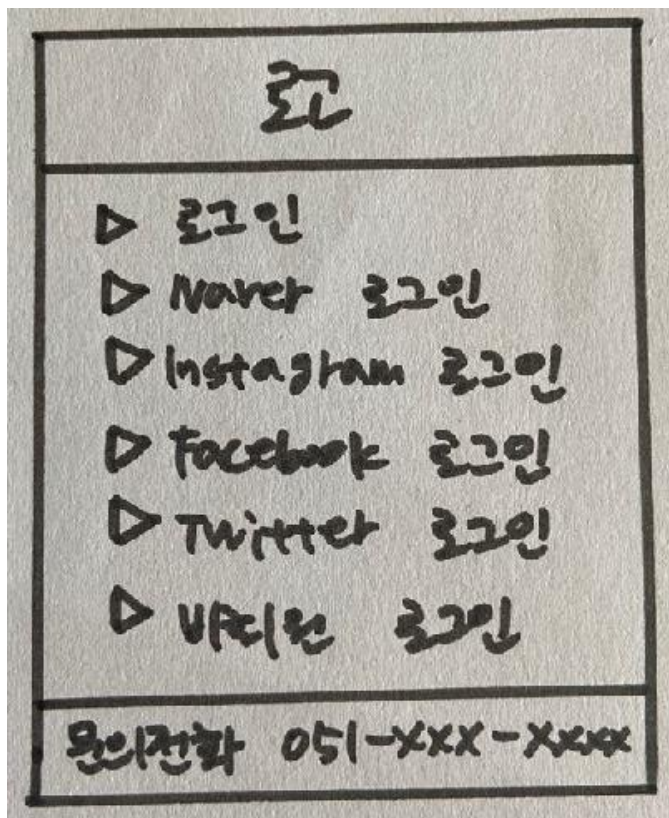 로고
▷ 로그인
▷ Naver 로그인
▷ Instagram 로그인
▷ Facebook 로그인
▷ Twitter 로그인
▷ 비회원 로그인
문의전화 051-xxx-xxxx